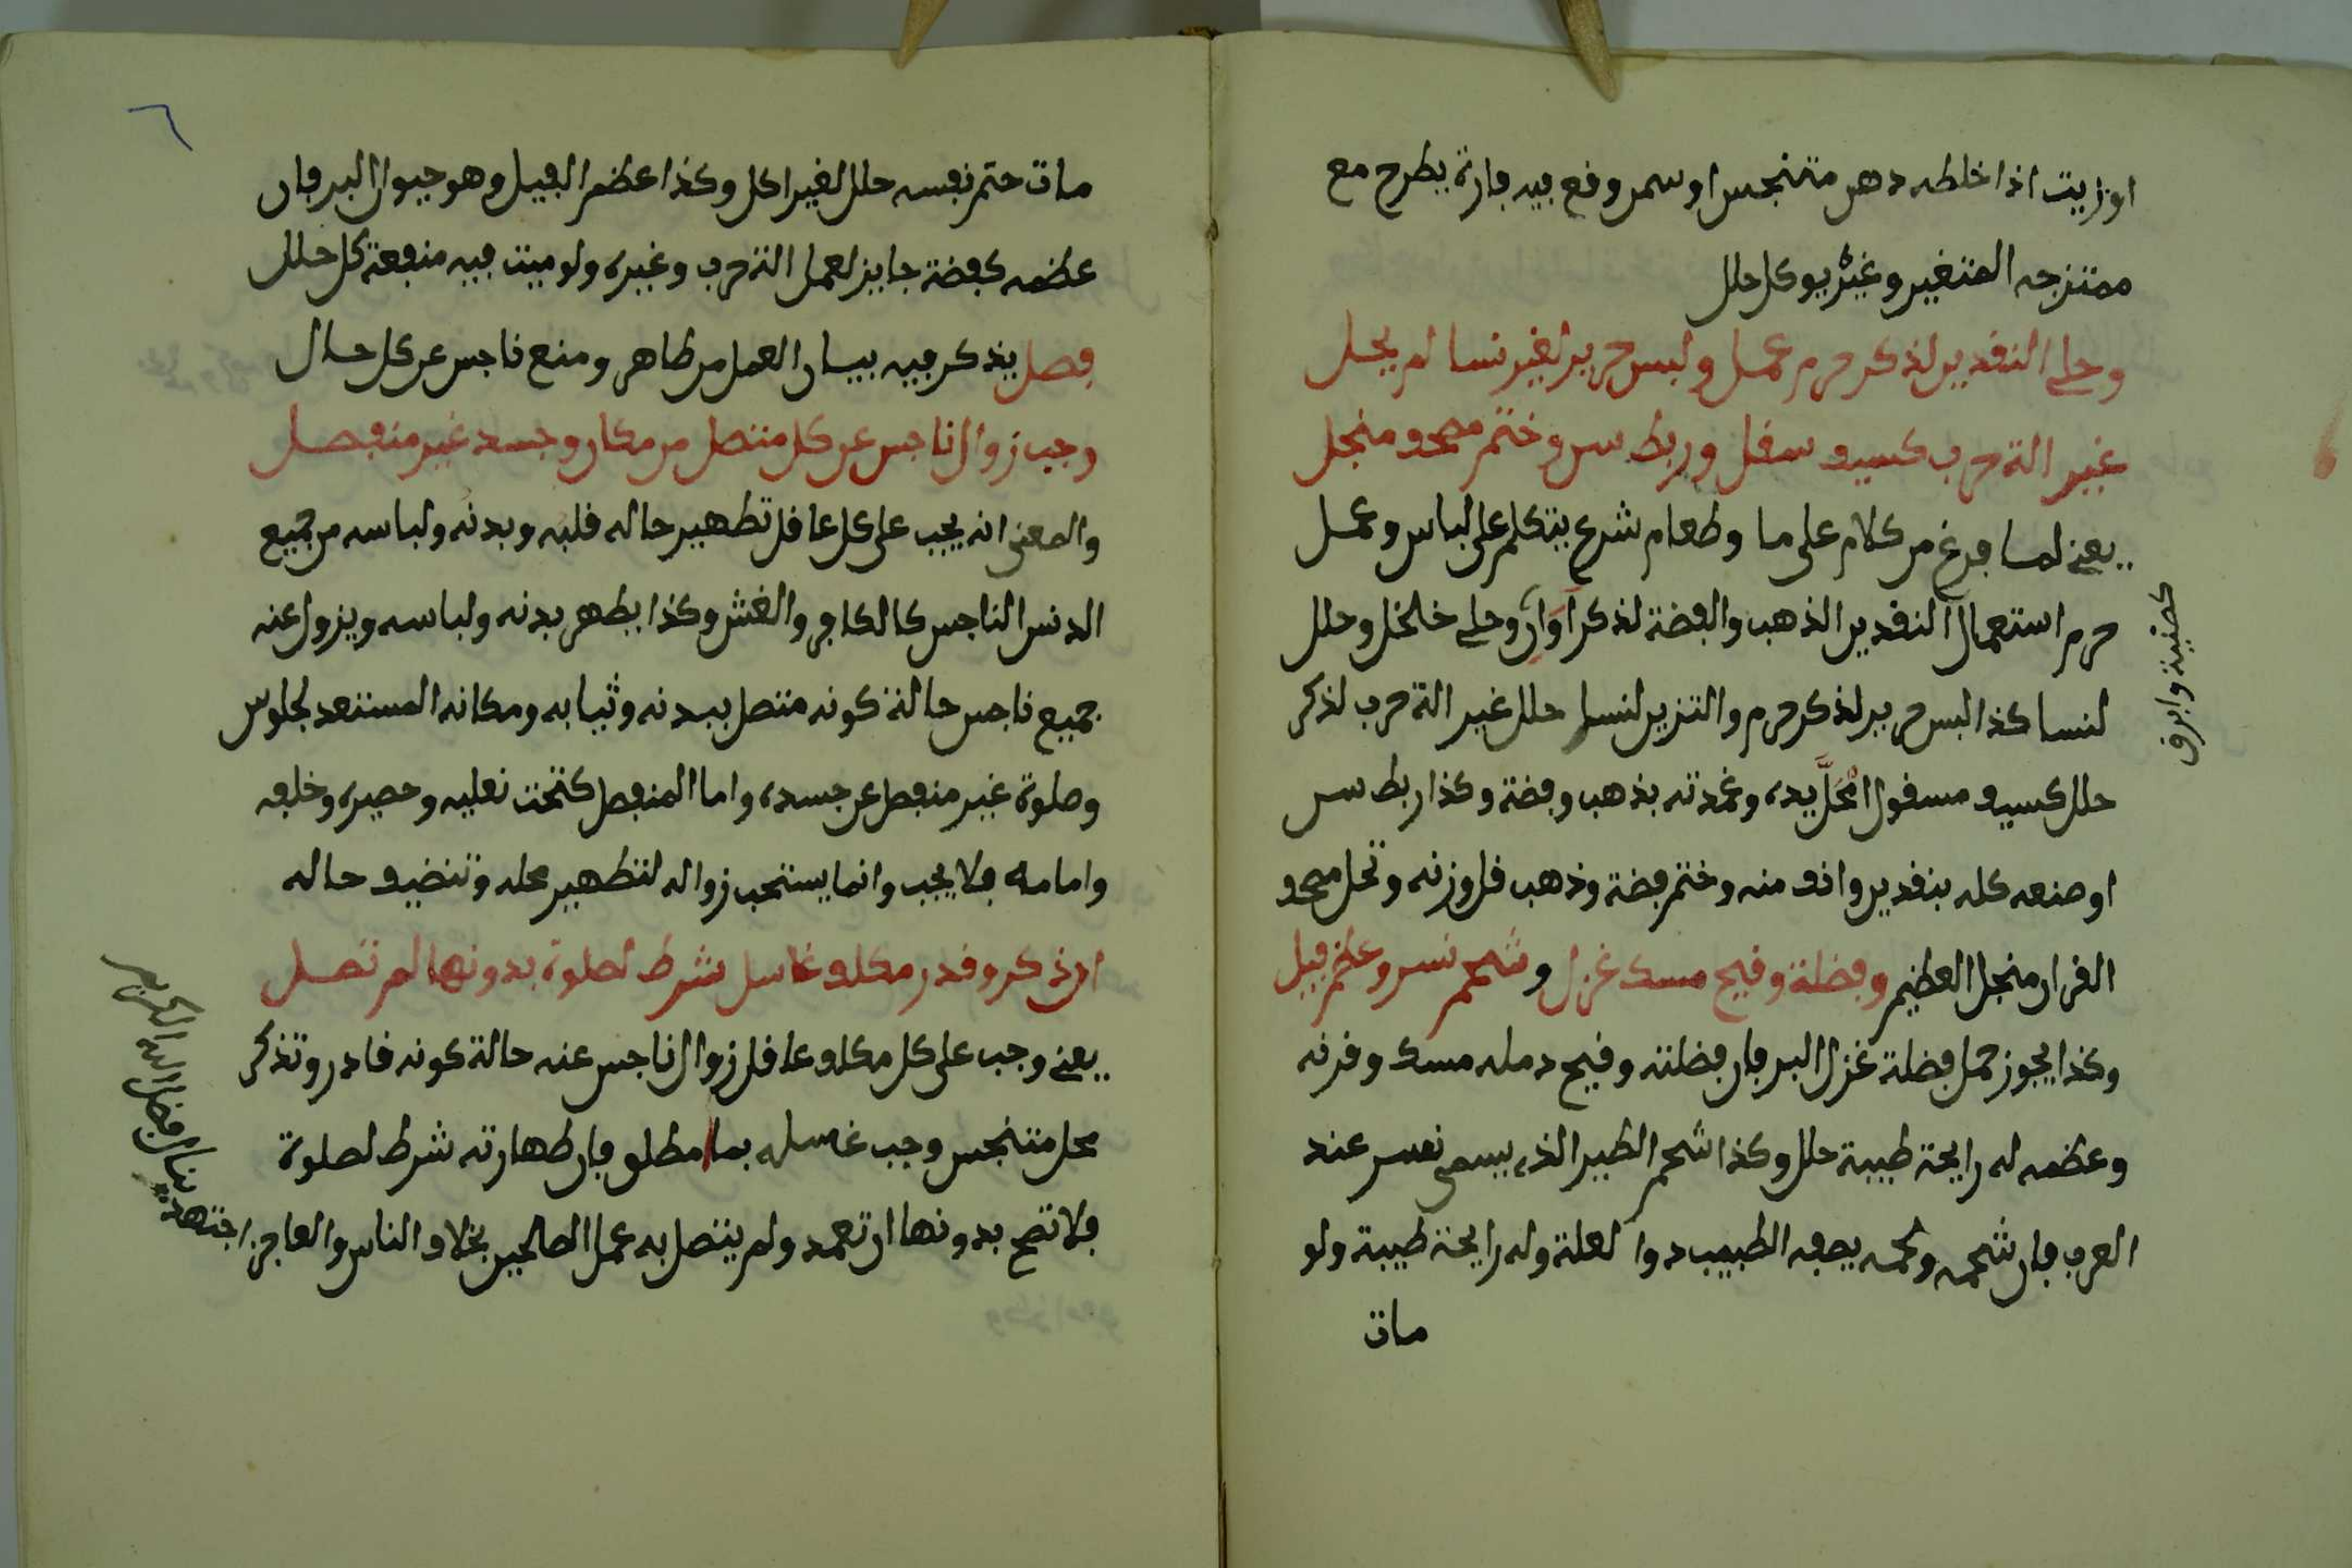 اوزيت اذا خلطه دهن متنجس او سمن وقع فيه فارة يطرح مع
ممتزجه المتغير وغيره يوكل حلل
وحلي النقدين لذكر حرم عمل ولبس حرير لغير نسا لم يحل
غير الة حرب كسيف سفل وربط سن وختم مصحف منجل
يعني لما فرغ من كلام على ما وطعام شرع يتكلم على لباس وعمل
حرم استعمال النقدين الذهب والفضة لذكر اوان وحلي خلخل وحلل
لنسا كذا لبس حرير لذكر حرم والتزين لنسا حلل غير الة حرب لذكر
حلل كسيف مسفول محل يده وغمدته بذهب وفضة وكذا ربط سن
او صنعه كله بنقدين وانف منه وختم فضة وذهب قل وزنه وتحل مصحف
القران منجل العظيم وفضلة وقيح مسك غزل وشحم نسر وعظم فيل
وكذا يجوز حمل فضلة غزل البر فان فضلته وقيح دمله مسك وقرنه
وعظمه له رايحة طيبة حلل وكذا شحم الطير الذي يسمى نفسر عند
العرب فان شحمه ولحمه يصفه الطبيب دوا لعلة وله رايحة طيبة ولو
مات
كصينة وابرق
٦
مات حتم نفسه حلل لغير اكل وكذا عظم الفيل وهو حيوان البر فان
عظمه كفضة جايز لعمل الة حرب وغيره ولو ميت فيه منفعة كل حلل
فصل يذكر فيه بيان العمل من طاهر ومنع ناجس عن كل حال
وجب زوال ناجس عن كل متصل من مكان وجسد غير منفصل
والمعنى انه يجب على كل عاقل تطهير حاله قلبه وبدنه ولباسه من جميع
الدنس الناجس كالكافر والغش وكذا يطهر بدنه ولباسه ويزول عنه
جميع ناجس حالة كونه متصل ببدنه وثيابه ومكانه المستعد لجلوس
وصلوة غير منفصل عن جسده واما المنفصل كتحت نعليه وحصيره وخلفه
وامامه فلا يجب وانما يستحب زواله لتطهير محله وتنضيف حاله
ان ذكر وقدر مكلف غاسل شرط لصلوة بدونها لم تصل
يعني وجب على كل مكلف عاقل زوال ناجس عنه حالة كونه قادر وتذكر
محل متنجس وجب غسله بما مطلق فان طهارته شرط لصلوة
فلا تصح بدونها ان تعمد ولم يتصل به عمل الصالحين بخلاف الناس والعاجز
اجتهد ينال فضل الله الكريم